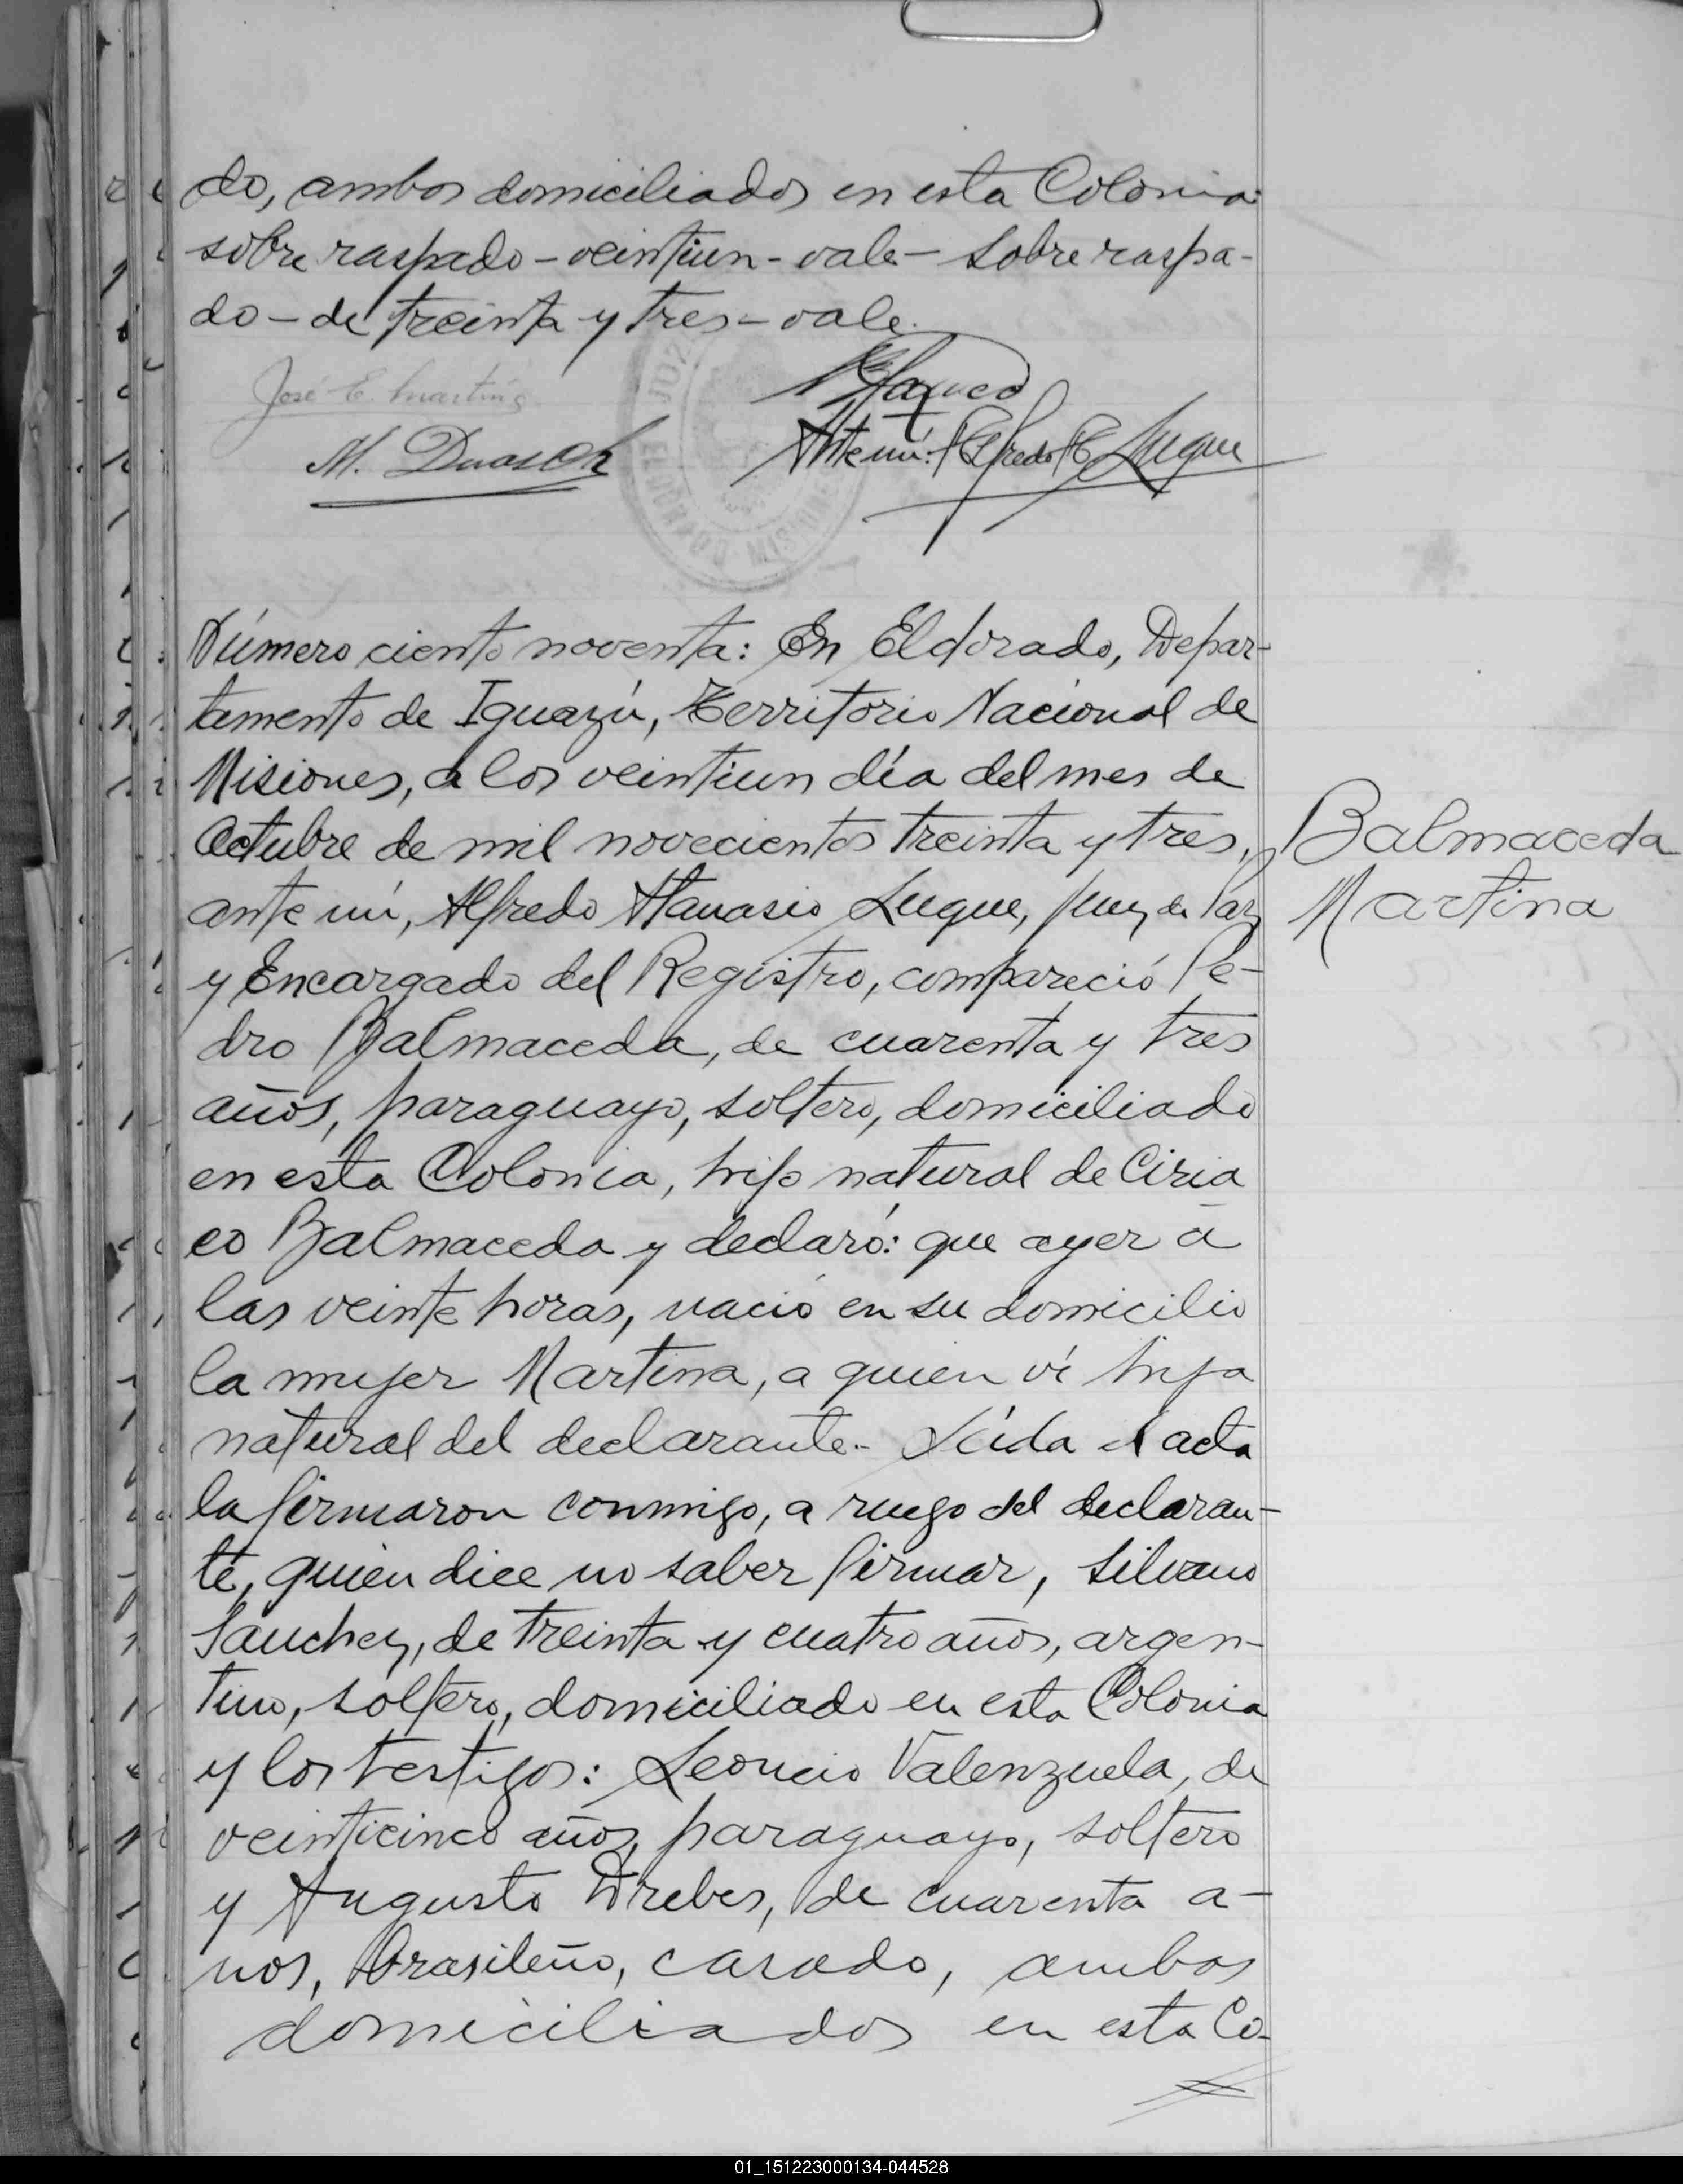 do, ambos domiciliados en esta Colonia:
sobre raspado - veintiun - vale - Sobre raspa-
do - de treinta y tres - vale.
José E. Martins
M. Duasch
Ante mí: Alfredo A. Luque
JUZ
ELDORADO MISIONES
Número ciento noventa: En Eldorado, Depar-
tamento de Iguazú, Territorio Nacional de
Misiones, a los veintiun día del mes de
Octubre de mil novecientos treinta y tres,
ante mí, Alfredo Atanasio Luque, Juez de Paz
y Encargado del Registro, compareció Pe-
dro Balmaceda, de cuarenta y tres
años, paraguayo, soltero, domiciliado
en esta Colonia, hijo natural de Ciria
co Balmaceda y declaró: que ayer á
las veinte horas, nació en su domicilio
la mujer Martina, a quien ví hija
natural del declarante.- Leída el acta
la firmaron conmigo, a ruego del declaran-
te, quien dice no saber firmar, Silvano
Sanchez, de treinta y cuatro años, argen-
tino, soltero, domiciliado en esta Colonia
y los testigos: Leoncio Valenzuela, de
veinticinco años, paraguayo, soltero
y Augusto Drebes, de cuarenta a-
ños, brasileño, casado, ambos
domiciliados en esta Co-
Balmaceda
Martina
01_151223000134-044528